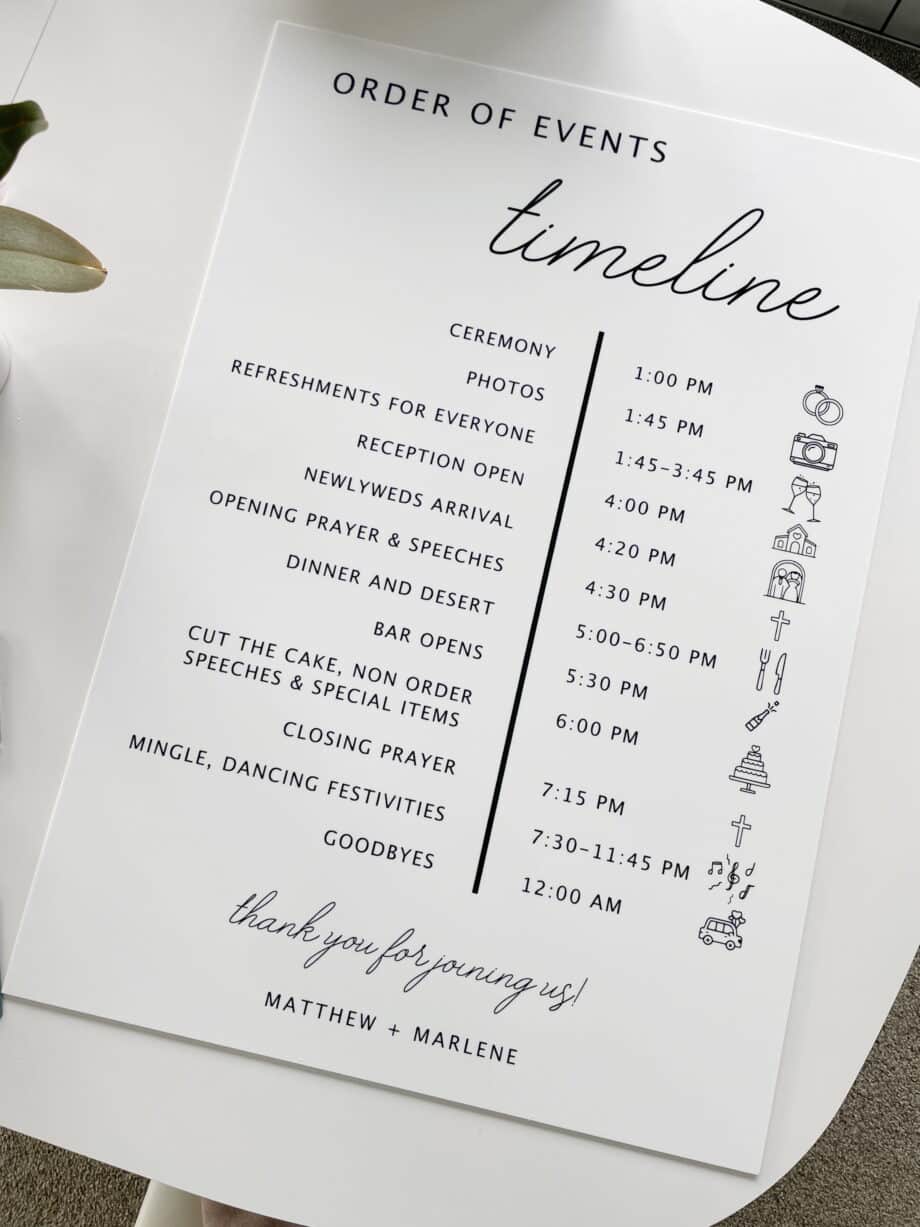 ORDER OF EVENTS
timeline
CEREMONY 1:00 PM
PHOTOS 1:45 PM
REFRESHMENTS FOR EVERYONE 1:45-3:45 PM
RECEPTION OPEN 4:00 PM
NEWLYWEDS ARRIVAL 4:20 PM
OPENING PRAYER & SPEECHES 4:30 PM
DINNER AND DESERT 5:00-6:50 PM
BAR OPENS 5:30 PM
CUT THE CAKE, NON ORDER 6:00 PM
SPEECHES & SPECIAL ITEMS
CLOSING PRAYER 7:15 PM
MINGLE, DANCING FESTIVITIES 7:30-11:45 PM
GOODBYES 12:00 AM
thank you for joining us!
MATTHEW + MARLENE